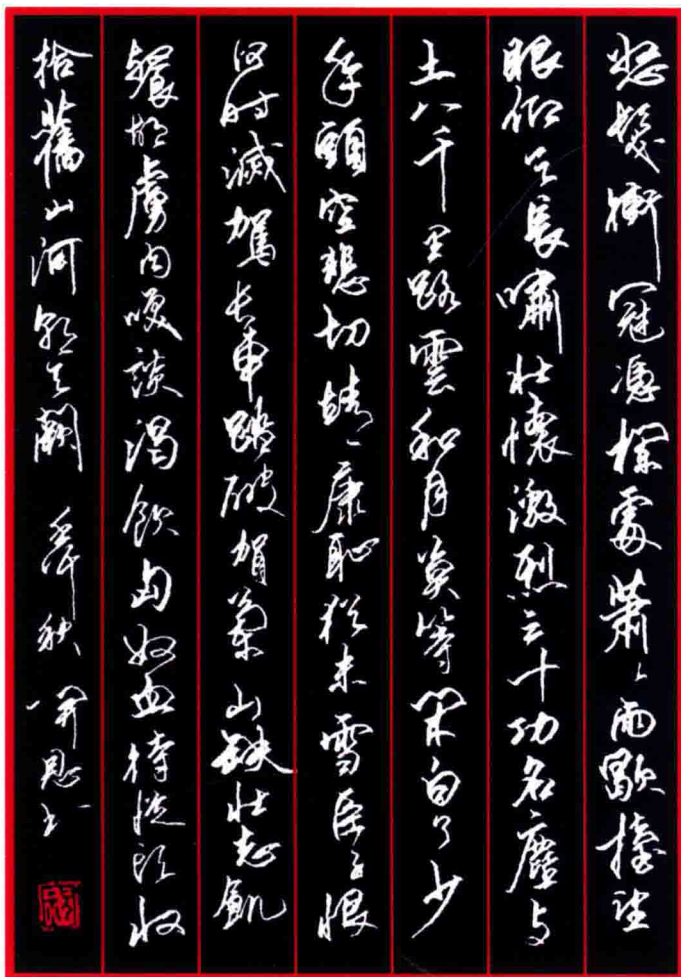 怒髮衝冠憑欄處蕭々雨歇擡望
眼仰天長嘯壯懷激烈三十功名塵与
土八千里路雲和月莫等閑白了少
年頭空悲切靖康恥猶未雪臣子恨
何时滅駕长車踏破賀蘭山缺壯志飢
餐胡虜肉笑談渴飲匈奴血待從头收
拾舊山河朝天闕 秋 书